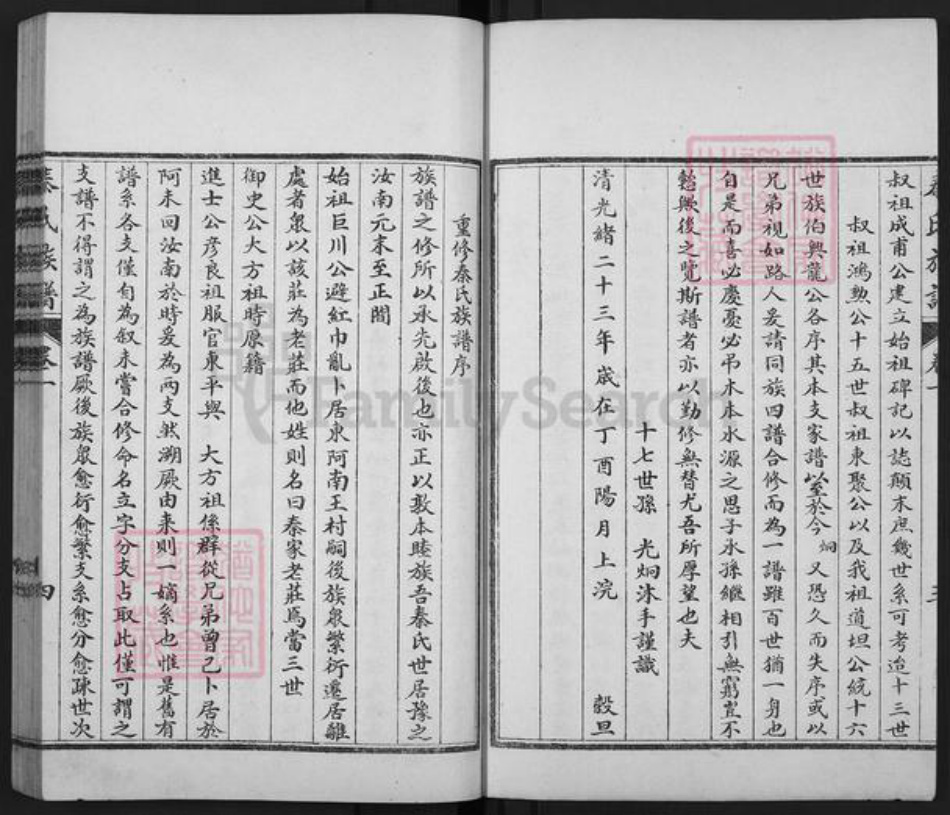 叔祖成甫公建立始祖碑記以誌顛末庶幾世系可考迨十三世
叔祖鴻勲公十五世叔祖東聚公以及我祖道坦公統十六
世族伯興龍公各序其本支家譜以至於今炯又恐久而失序或以
兄弟視如路人爰請同族四譜合修而為一譜雖百世猶一身也
自是而喜必慶憂必吊木本水源之思子承孫繼相引無窮豈不
懿歟後之覽斯譜者亦以勤修無替尤吾所厚望也夫
十七世孫 光炯沐手謹識
清光緒二十三年歲在丁酉陽月上浣 穀旦
秦氏族譜 卷一 三
重修秦氏族譜序
族譜之修所以承先啟後也亦正以敦本睦族吾秦氏世居豫之
汝南元末至正間
始祖巨川公避紅巾亂卜居東阿南王村嗣後族衆繁衍遷居離
處者衆以該莊為老莊而他姓則名曰秦家老莊焉當三世
御史公大方祖時原籍
進士公彥良祖服官東平與 大方祖係群從兄弟曾已卜居於
阿未回汝南於時爰為兩支然溯厥由来則一嫡系也惟是舊有
譜系各支僅自為叙未嘗合修命名立字分支占取此僅可謂之
支譜不得謂之為族譜厥後族衆愈衍愈繁支系愈分愈疎世次
秦氏族譜 卷一 四
FamilySearch